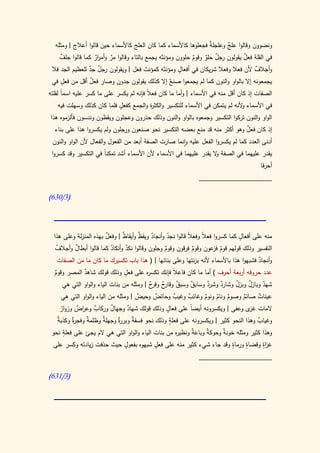 ونضوون وقالوا علجٌ وعلجةٌ فجعلوها كالأسماء كما كان العلج كالأسماء حين قالوا أعلاج | ومثله
في القلة فعلٌ يقولون رجلٌ حلوٌ وقومٌ حلوون ومؤنثه يجمع بالتاء وقالوا مرٌ وأمرارٌ كما قالوا جلفٌ
وأجلافٌ لأن فعلاً وفعلاً شريكان في أفعالٍ ومؤنثه كمؤنث فعلٍ | ويقولون رجلٌ جدٌ للعظيم الجد فلا
يجمعونه إلا بالواو والنون كما لم يجمعوا صنعٌ إلا كذلك يقولون جدون وصار فعلٌ أقل من فعلٍ في
الصفات إذ كان أقل منه في الأسماء | وأما ما كان فعلاً فإنه لم يكسر على ما كسر عليه اسماً لقلته
في الأسماء ولأنه لم يتمكن في الأسماء للتكسير والكثرة والجمع كفعلٍ فلما كان كذلك وسهلت فيه
الواو والنون تركوا التكسير وجمعوه بالواو والنون وذلك حذرون وعجلون ويقظون وندسون فألزموه هذا
إذ كان فعلٌ وهو أكثر منه قد منع بعضه التكسير نحو صنعون ورجلون ولم يكسروا هذا على بناء
أدنى العدد كما لم يكسروا الفعل عليه وإنما صارت الصفة أبعد من الفعول والفعال لأن الواو والنون
يقدر عليهما في الصفة ولا يقدر عليهما في الأسماء لأن الأسماء أشد تمكناً في التكسير وقد كسروا
أحرفا
(630/3)
منه على أفعالٍ كما كسروا فعلاً وفعلاً قالوا نجدٌ وأنجادٌ ويقظٌ وأيقاظٌ | وفعلٌ بهذه المنزلة وعلى هذا
التفسير وذلك قولهم قومٌ فزعون وقومٌ فرقون وقومٌ وجلون وقالوا نكدٌ وأنكادٌ كما قالوا أبطالٌ وأجلافٌ
وأنجادٌ فشبهوا هذا بالأسماء لأنه بزنتها وعلى بنائها | ( هذا باب تكسيرك ما كان ما من الصفات
عدد حروفه أربعة أحرف ) أما ما كان فاعلاً فإنك تكسره على فعلٍ وذلك قولك شاهدٌ المصر وقومٌ
شهدٌ وبازلٌ وبزلٌ وشاردٌ وشردٌ وسابقٌ وسبقٌ وقارحٌ وقرحٌ | ومثله من بنات الياء والواو التي هي
عيناتٌ صائمٌ وصومٌ ونائمٌ ونومٌ وغائبٌ وغيبٌ وحائضٌ وحيضٌ | ومثله من الياء والواو التي هي
لامات غزى وعفى | ويكسرونه أيضاً على فعالٍ وذلك قولك شهادٌ وجهالٌ وركابٌ وعراضٌ وزوارٌ
وغيابٌ وهذا النحو كثير | ويكسرونه على فعلةٍ وذلك نحو فسقةٌ وبررةٍ وجهلةٌ وظلمةٌ وفجرةٌ وكذبةٌ
وهذا كثير ومثله خونةٌ وحوكةٌ وباعةٌ ونظيره من بنات الياء والواو التي هي لام يجئ على فعلةٍ نحو
غزاةٍ وقضاةٍ ورماةٍ وقد جاء شيء كثير منه على فعلٍ شبهوه بفعولٍ حيث حذفت زيادته وكسر على
(631/3)